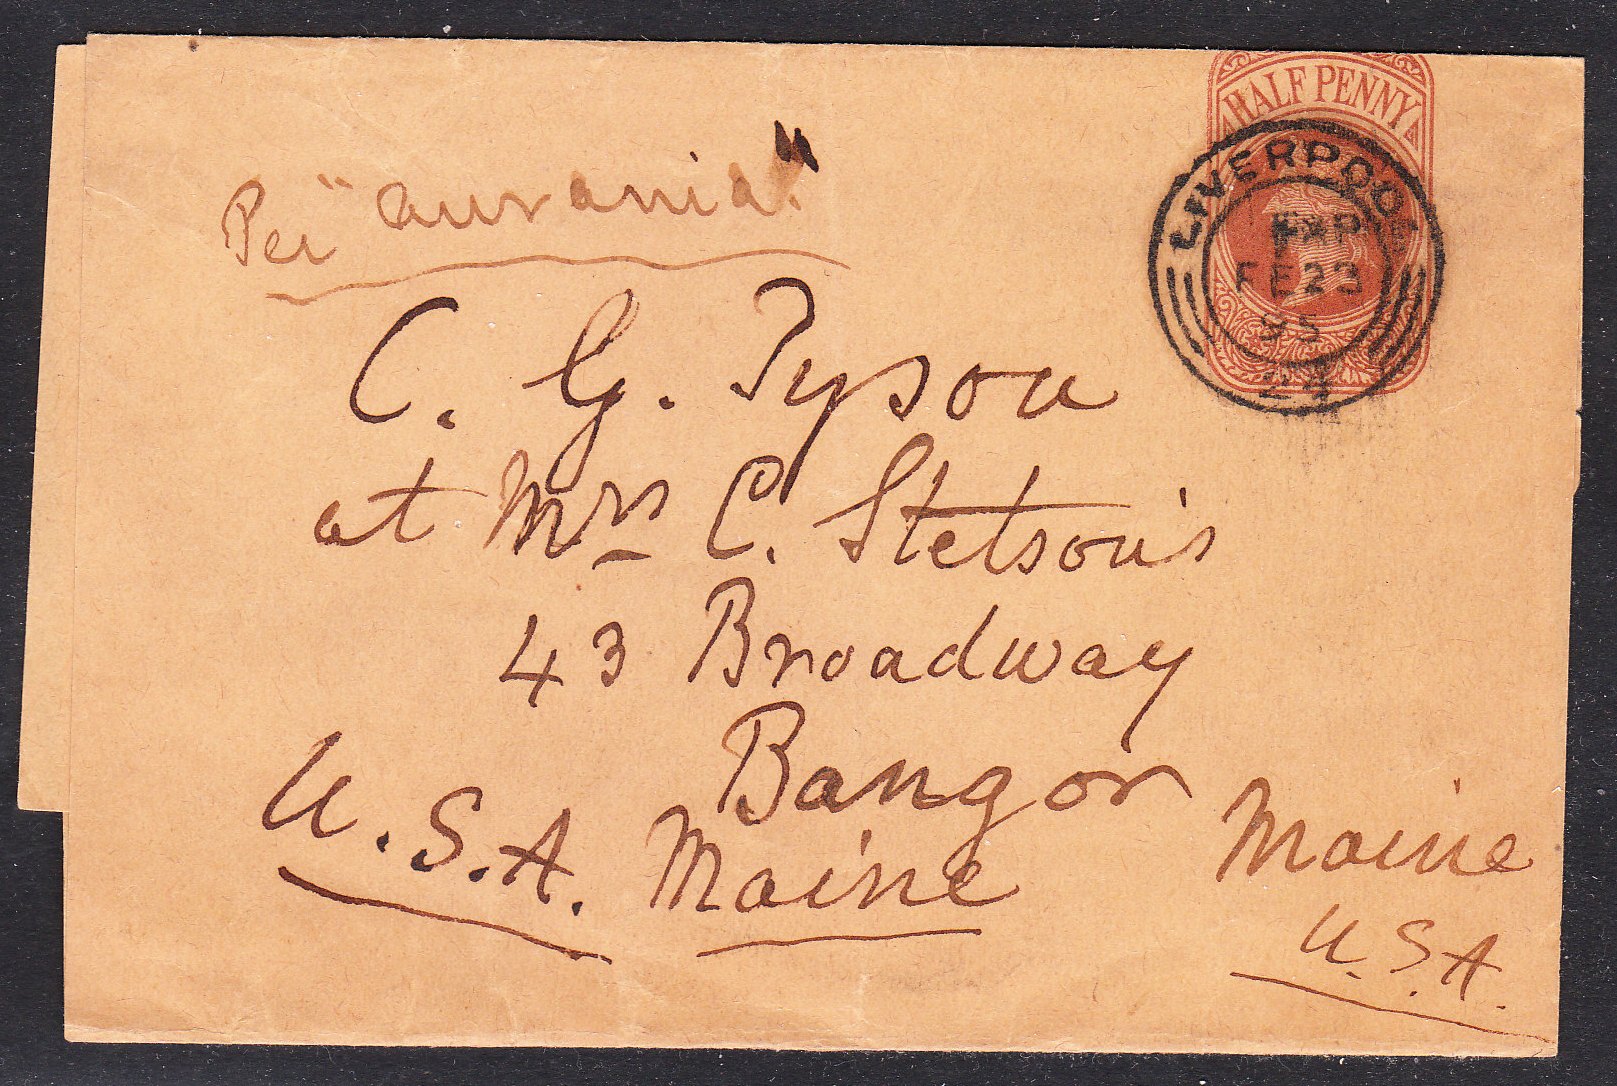 HALF PENNY
LIVERPOOL
FE 23
95
24
Per "aurania"
C. G. Tyson
at Mrs C. Stetson's
43 Broadway
Bangor
U.S.A. Maine
Maine
U.S.A.